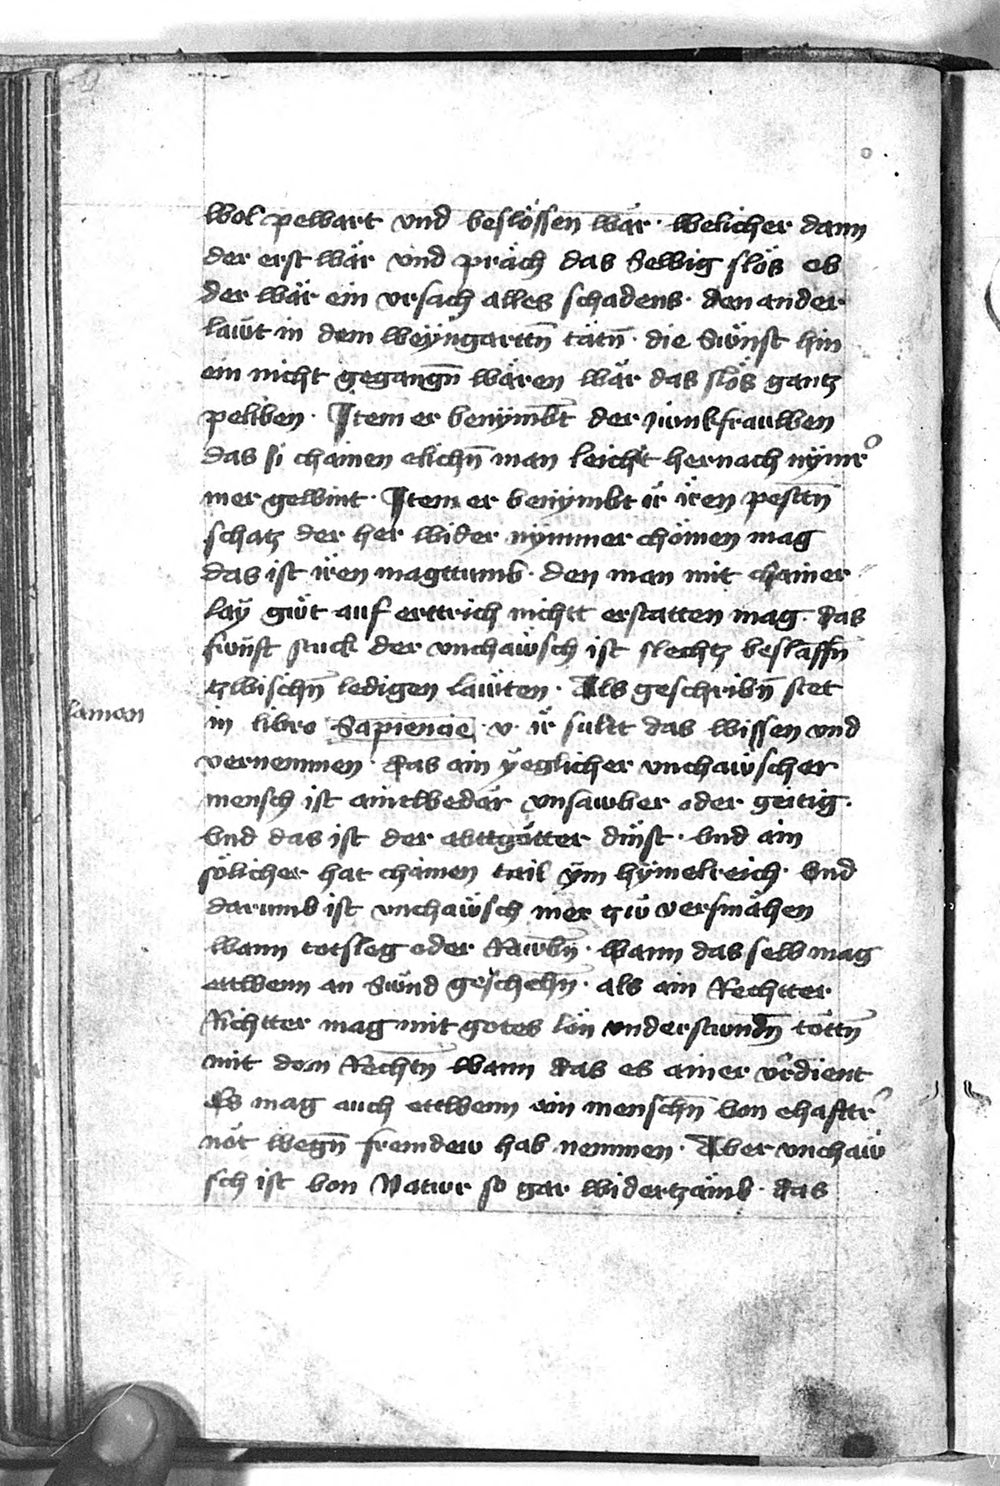 wol pewart vnd beslössen wär · welicher dann
der erst wär vnd präch das Selbig slös es
der wär ein vrsach alles schadens · den ander
läwt in dem weÿngarttn̄ tätn̄ · die Sünst hin
ein nicht gegangn̄ wären wär das slös gantz
peliben · Item er benÿmbt der junkfrauwen
das si chainen elichn̄ man leicht hernach nÿmr̉
mer gewint · Item er benÿmbt ir iren pestn̄
schatz der her wider nÿmmer chömen mag
das ist iren magttumb · den man mit chainer
laÿ güt auf erttrich nichtt erstatten mag · das
fünft stuck der vnchawsch ist slechtz beslaffn̄
tzwischn̄ ledigen läwten · Als geschribn̄ stet
lamon
in libro Sapiencie · v · ir sullt das wissen vnd
vernemmen · das ain ÿeglicher vnchawscher
mensch ist aintwedär vnsawber oder geitig ·
Vnd das ist der abttgötter dinst · Vnd ain
sölicher hat chainen tail ÿm hÿmelreich · Vnd
darumb ist vnchawsch mer tzü versmähen
wann totsleg oder Rawbn̄ · wann das selb mag
ettwenn an Sünd geschehn̄ · als ain Rechtter
Richtter mag mit gotes lön vnderstundn̄ töttn̄
mit dem Rechtn̄ wann das es ainer v̉dient
Es mag auch ettwenn ein menschn̄ von ehafttr̉
nöt wegn̄ fremdew hab nemmen · Aber vnchaw
sch ist von Natwr so gar widertzämb · das